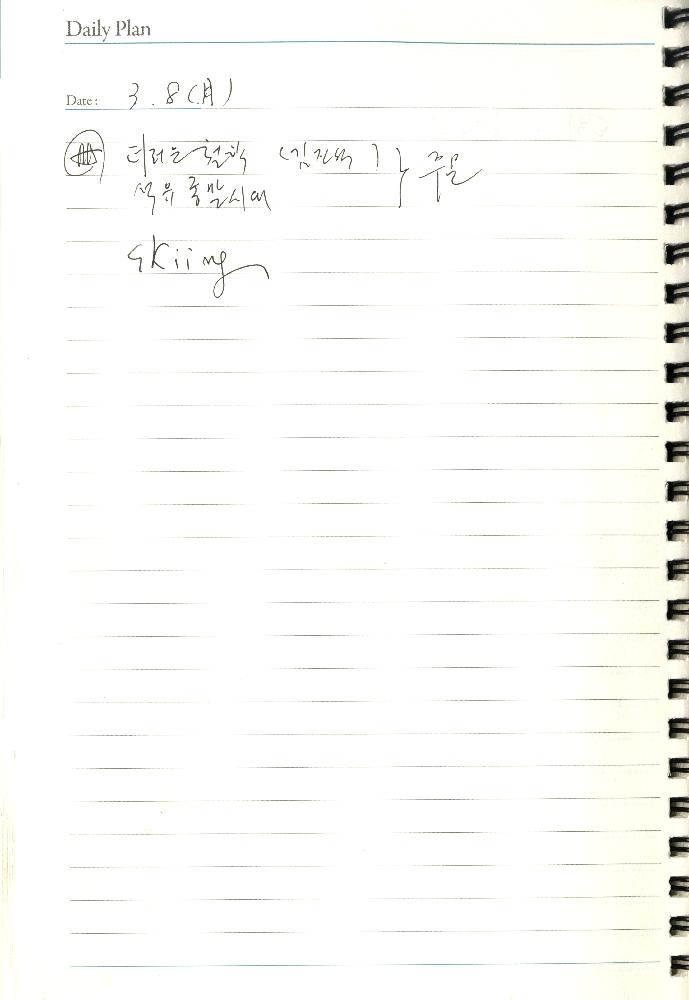 Daily Plan
Date: 3.8(月)
冊 더러운 철학 (김진석) } 주문
석유 종말시계
skiing